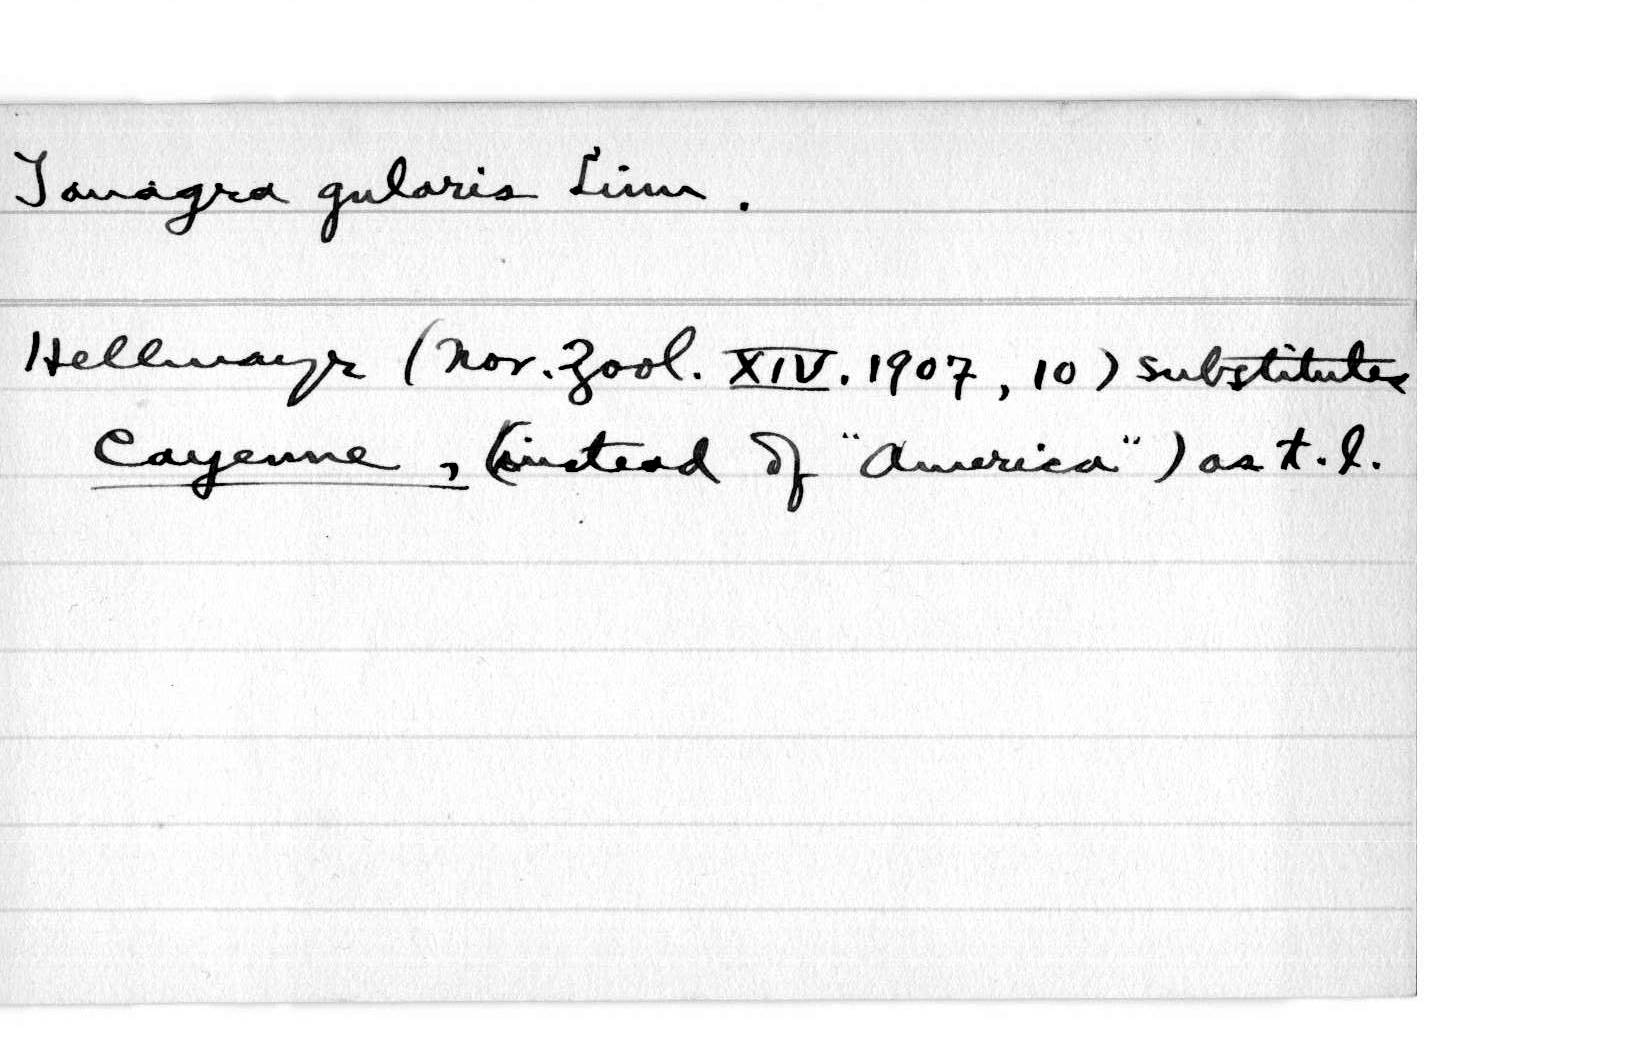 Tanagra gularis Linn.
Hellmayr (Nov. Zool. XIV. 1907, 10) substitutes
Cayenne, (instead of "America") as t.l.